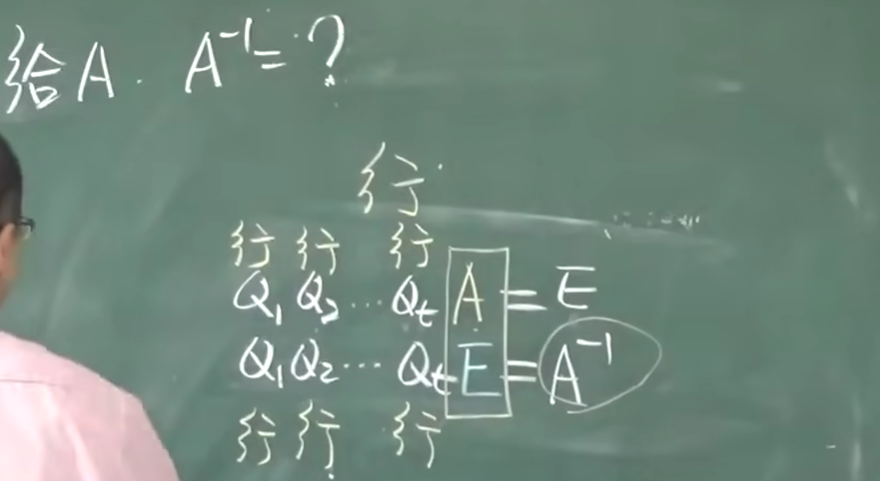 给A. A⁻¹=?
行
行 行 行
Q₁ Q₂ ... Qₜ A = E
Q₁ Q₂ ... Qₜ E = A⁻¹
行 行 行